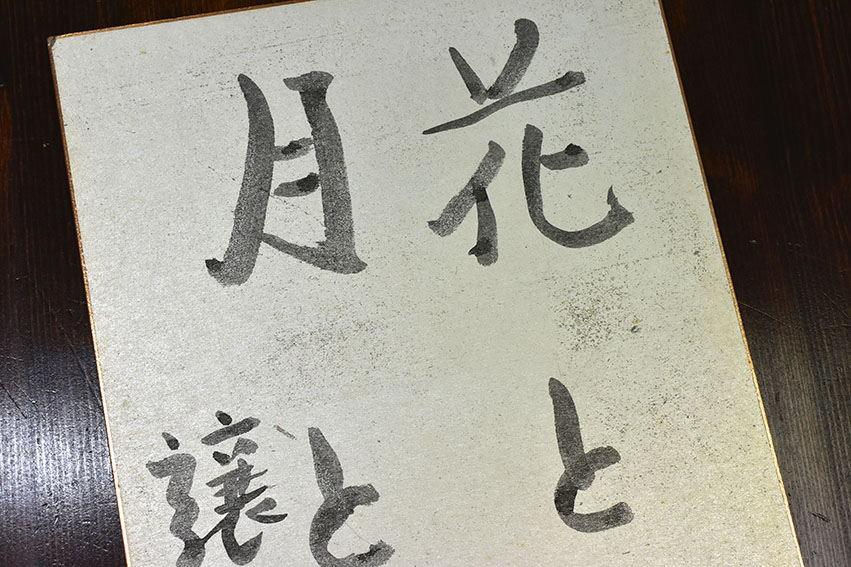 花と
月と
譲